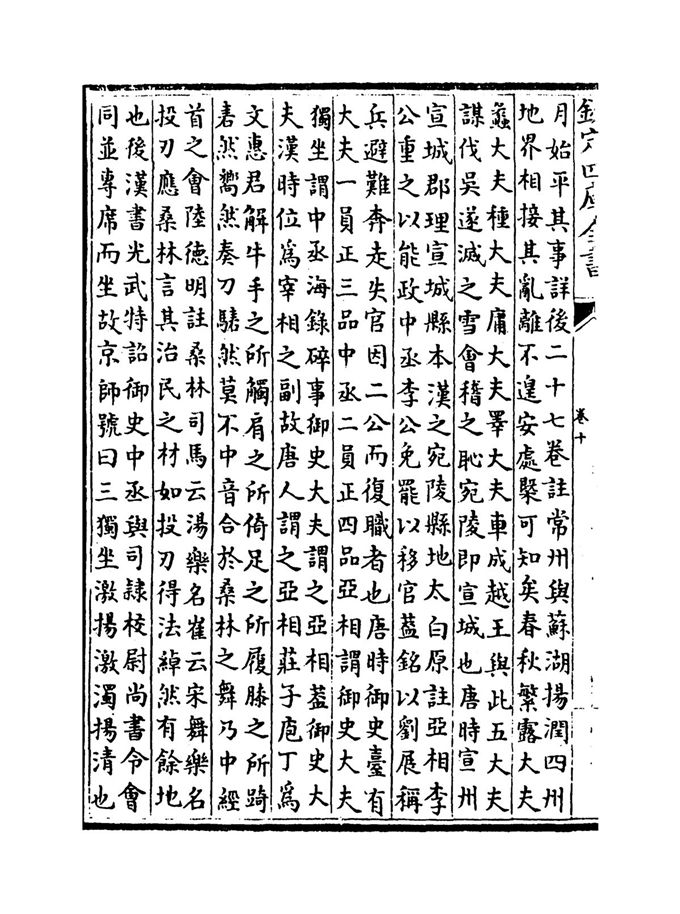 欽定四庫全書
卷十
月始平其事詳後二十七卷註常州與蘇湖揚潤四州
地界相接其亂離不遑安處槩可知矣春秋繁露大夫
蠡大夫種大夫庸大夫睪大夫車成越王與此五大夫
謀伐吳遂滅之雪會稽之恥宛陵即宣城也唐時宣州
宣城郡理宣城縣本漢之宛陵縣地太白原註亞相李
公重之以能政中丞李公免罷以移官蓋銘以劉展稱
兵避難奔走失官因二公而復職者也唐時御史臺有
大夫一員正三品中丞二員正四品亞相謂御史大夫
獨坐謂中丞海錄碎事御史大夫謂之亞相蓋御史大
夫漢時位為宰相之副故唐人謂之亞相莊子庖丁為
文惠君解牛手之所觸肩之所倚足之所履膝之所踦
砉然嚮然奏刀騞然莫不中音合於桑林之舞乃中經
首之會陸德明註桑林司馬云湯樂名崔云宋舞樂名
投刃應桑林言其治民之材如投刃得法綽然有餘地
也後漢書光武特詔御史中丞與司隷校尉尚書令會
同並專席而坐故京師號曰三獨坐激揚激濁揚清也